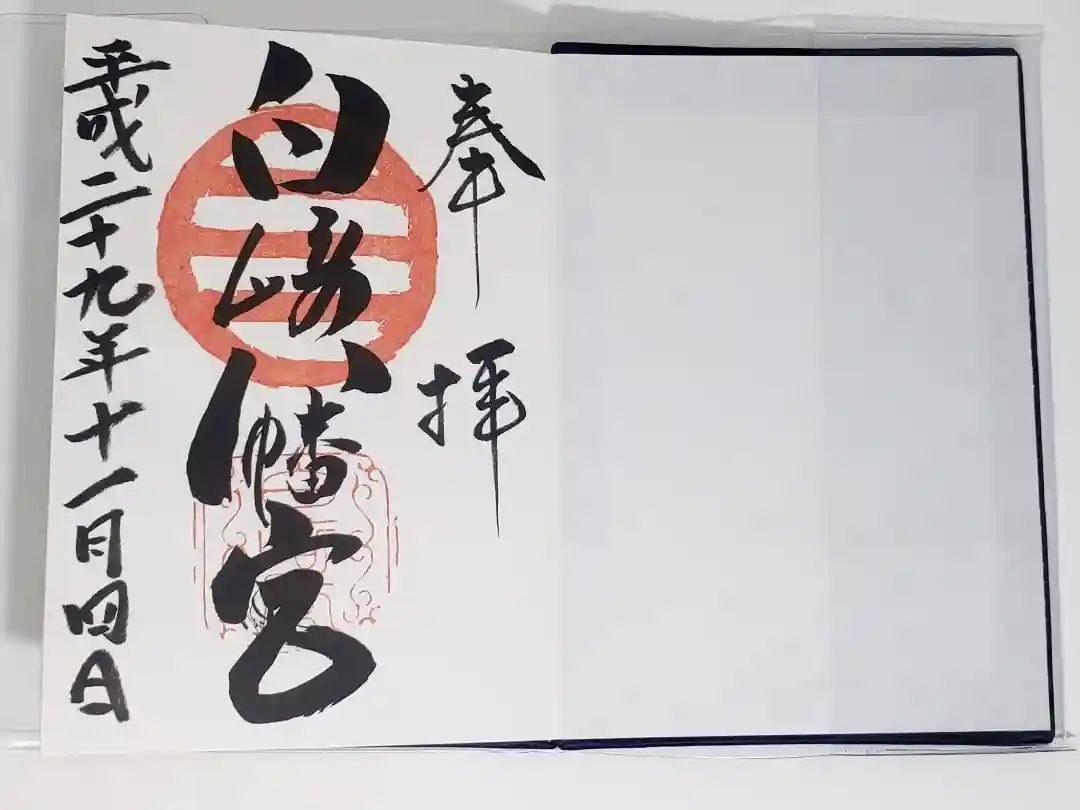 奉拝
白崎八幡宮
平成二十九年十一月四日